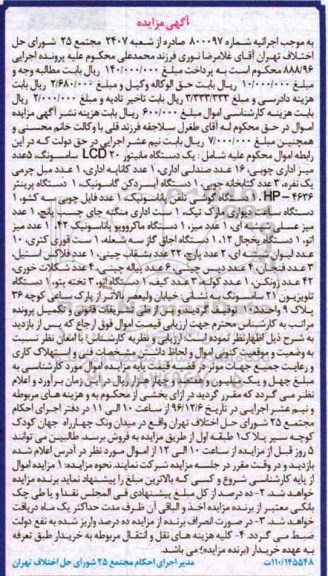 آگهی مزایده
به موجب اجرائیه شماره ۸۰۰۰۹۷ صادره از شعبه ۲۴۰۷ مجتمع ۲۵ شورای حل
اختلاف تهران آقای غلامرضا نوری فرزند محمدعلی محکوم علیه پرونده اجرایی
۸۸۸/۹۶ محکوم است به پرداخت مبلغ ۱۴۰/۰۰۰/۰۰۰ ریال بابت مطالبه وجه و
مبلغ ۱۰/۰۰۰/۰۰۰ ریال بابت حق الوکاله وکیل و مبلغ ۲/۶۸۰/۰۰۰ ریال بابت
هزینه دادرسی و مبلغ ۲/۳۳۳/۳۳۳ ریال بابت تاخیر تادیه و مبلغ ۲/۰۰۰/۰۰۰ ریال
بابت هزینه کارشناسی اموال مبلغ ۶۰۰/۰۰۰ ریال بابت هزینه نشر آگهی مزایده
اموال در حق محکوم له آقای طغرل سلاجقه فرزند قلی با وکالت خانم محسنی و
همچنین مبلغ ۷/۰۰۰/۰۰۰ ریال بابت نیم عشر اجرایی در حق دولت که در این
رابطه اموال محکوم علیه شامل: یک دستگاه مانیتور LCD ۲۰ سامسونگ، ۵عدد
میز اداری چوبی، ۱۶ عدد صندلی اداری، ۱ عدد کتابه اداری، ۱ عدد مبل چرمی
یک نفره، ۳ عدد کتابخانه چوبی، ۱ دستگاه آبسردکن گاسونیک، ۱ دستگاه پرینتر
HP – ۴۶۳۶، ۱ دستگاه تلفن پاناسونیک، ۱ عدد فایل چوبی سه کشو، ۱
دستگاه ساعت دیواری مارک تیک، ۱ ست اداری منگنه جای چسب پانچ، ۱ عدد
میز عسلی شیشه ای، ۱ عدد میز، ۱ دستگاه ماکروویو پاناسونیک ۴۲، ۱ عدد میز
اتو، ۱ دستگاه یخچال ۱۲، ۱ دستگاه اجاق گاز سه شعله، ۱ ست قوری کتری، ۱۰
عدد لیوان شیشه ای، ۲ عدد پارچ، ۲۲ عدد بشقاب چینی، ۲ عدد فلاکس استیل،
۳ عدد فنجان، ۲ عدد دیس چینی، ۶ عدد پیاله چینی، ۴ عدد شکلات خوری،
۴۳ عدد زونکن، ۱ عدد کوله، ۱ عدد کیف، ۱ دستگاه اتو، ۳ تخته پتو، ۱ دستگاه
تلویزیون ۲۱ سامسونگ به نشانی: خیابان ولیعصر بالاتر از پارک ساعی کوچه ۳۶
پلاک ۹ واحد ۱۵ توقیف گردید و پس از طی تشریفات قانونی و تکمیل پرونده
مراتب به کارشناس محترم جهت ارزیابی قیمت اموال فوق ارجاع که پس از بازدید
به شرح ذیل اظهارنظر نموده است: ارزیابی و نظریه کارشناس: با امعان نظر نسبت
به وضعیت و موقعیت کنونی اموال و لحاظ داشتن مشخصات فنی و استهلاک کاری
و رعایت جمیع جهات موثر در قضیه، قیمت پایه مزایده اموال مورد کارشناسی به
مبلغ چهل و یک میلیون و هفتصد و چهار هزار ریال در این زمان برآورد و اعلام
نظر می گردد که مقرر گردید در ازای بخشی از محکوم به و هزینه های مربوطه
و نیم عشر اجرایی در تاریخ ۹۶/۱۲/۶ از ساعت ۱۰ الی ۱۱ در دفتر اجرای احکام
مجتمع ۲۵ شورای حل اختلاف تهران واقع در میدان ونک چهارراه جهان کودک
کوچه سپر پلاک ۱ طبقه اول از طریق مزایده به فروش برسد. طالبین می توانند
۵ روز قبل از مزایده از ساعت ۱۰ الی ۱۲ از اموال مورد نظر در آدرس اعلام شده
بازدید و در وقت مقرر در جلسه مزایده شرکت نمایند. نحوه مزایده: ۱ مزایده اموال
از پایه کارشناسی شروع و کسی که بالاترین مبلغ را پیشنهاد نماید برنده مزایده
خواهد شد. ۲- ده درصد از کل مبلغ پیشنهادی فی المجلس نقدا و یا طی چک
بانکی معتبر از برنده مزایده اخذ و الباقی آن ظرف مدت حداکثر یک ماه دریافت
خواهد شد. ۳- در صورت انصراف برنده از مزایده ده درصد واریز شده به نفع دولت
ضبط می گردد. ۴- کلیه هزینه های نقل و انتقال مربوطه به خریدار طبق تعرفه
به عهده خریدار (برنده مزایده) می باشد.
۱۱۰/۱۴۵۵۴۸ت مدیر اجرای احکام مجتمع ۲۵ شورای حل اختلاف تهران